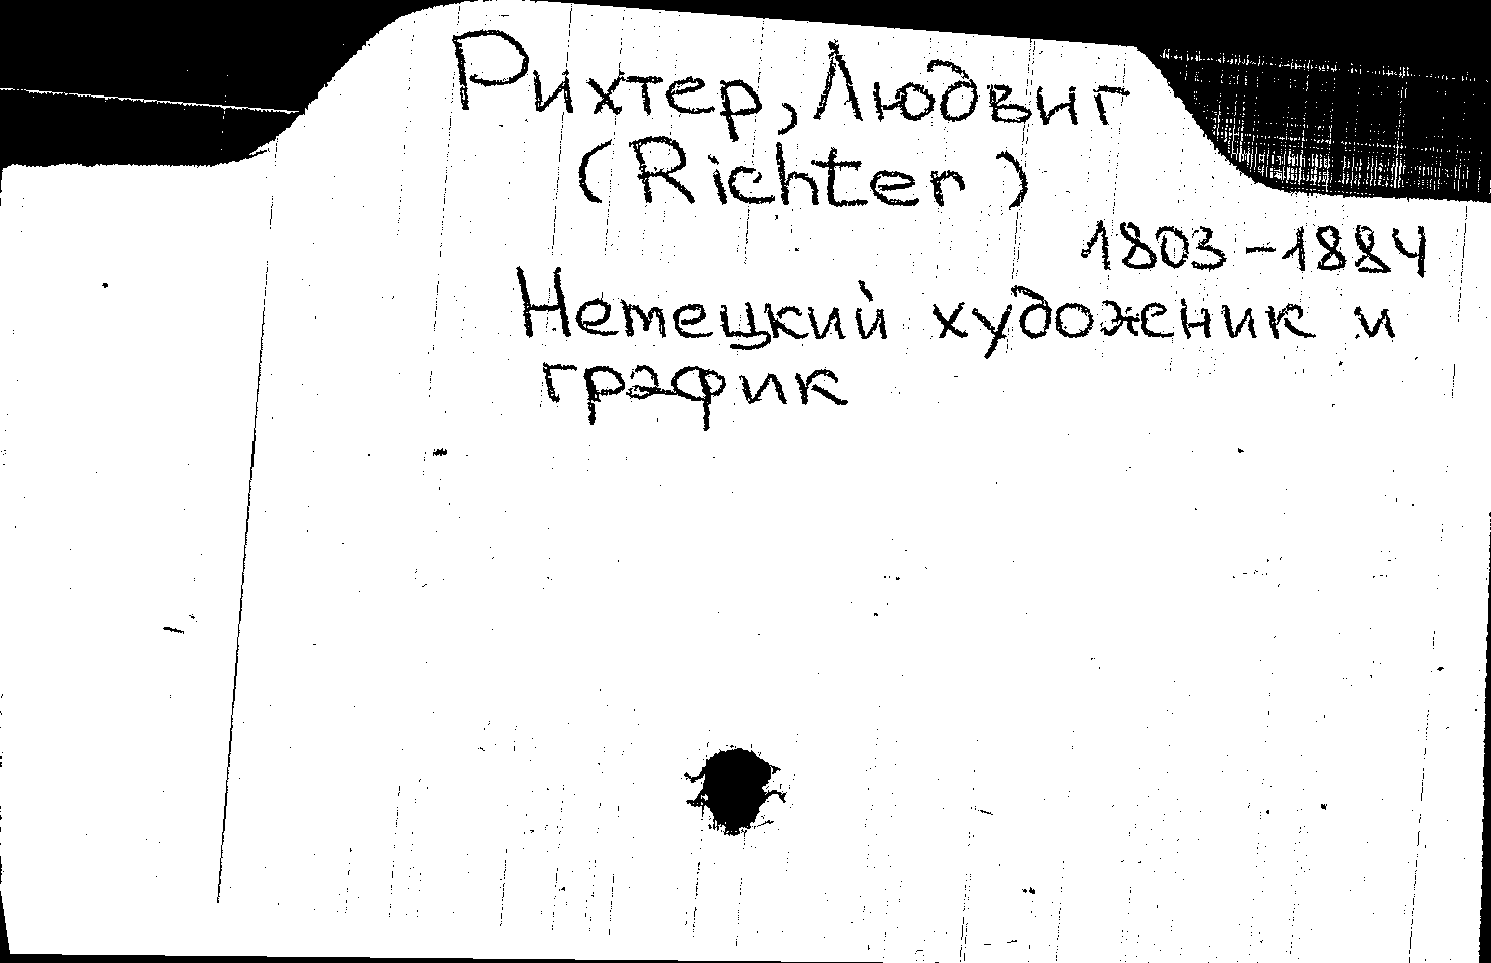 Рихтер, Людвиг
(Richter)
1803-1884
Немецкий художник и
график